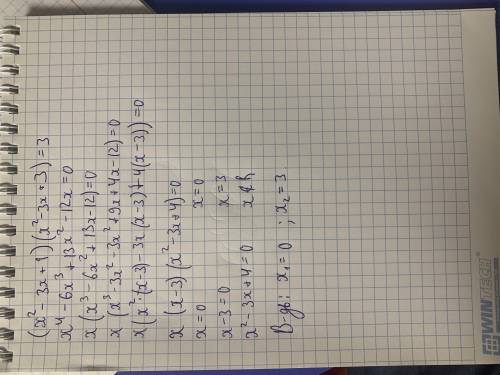 (x² - 3x + 1)(x² - 3x + 3) = 3
x⁴ - 6x³ + 13x² - 12x = 0
x(x³ - 6x² + 13x - 12) = 0
x(x³ - 3x² - 3x² + 9x + 4x - 12) = 0
x(x²·(x-3) - 3x(x-3) + 4(x-3)) = 0
x(x-3)(x² - 3x + 4) = 0
x = 0 x = 0
x - 3 = 0 x = 3
x² - 3x + 4 = 0 x ∉ R
В-дь: x₁ = 0 ; x₂ = 3
WINTECH